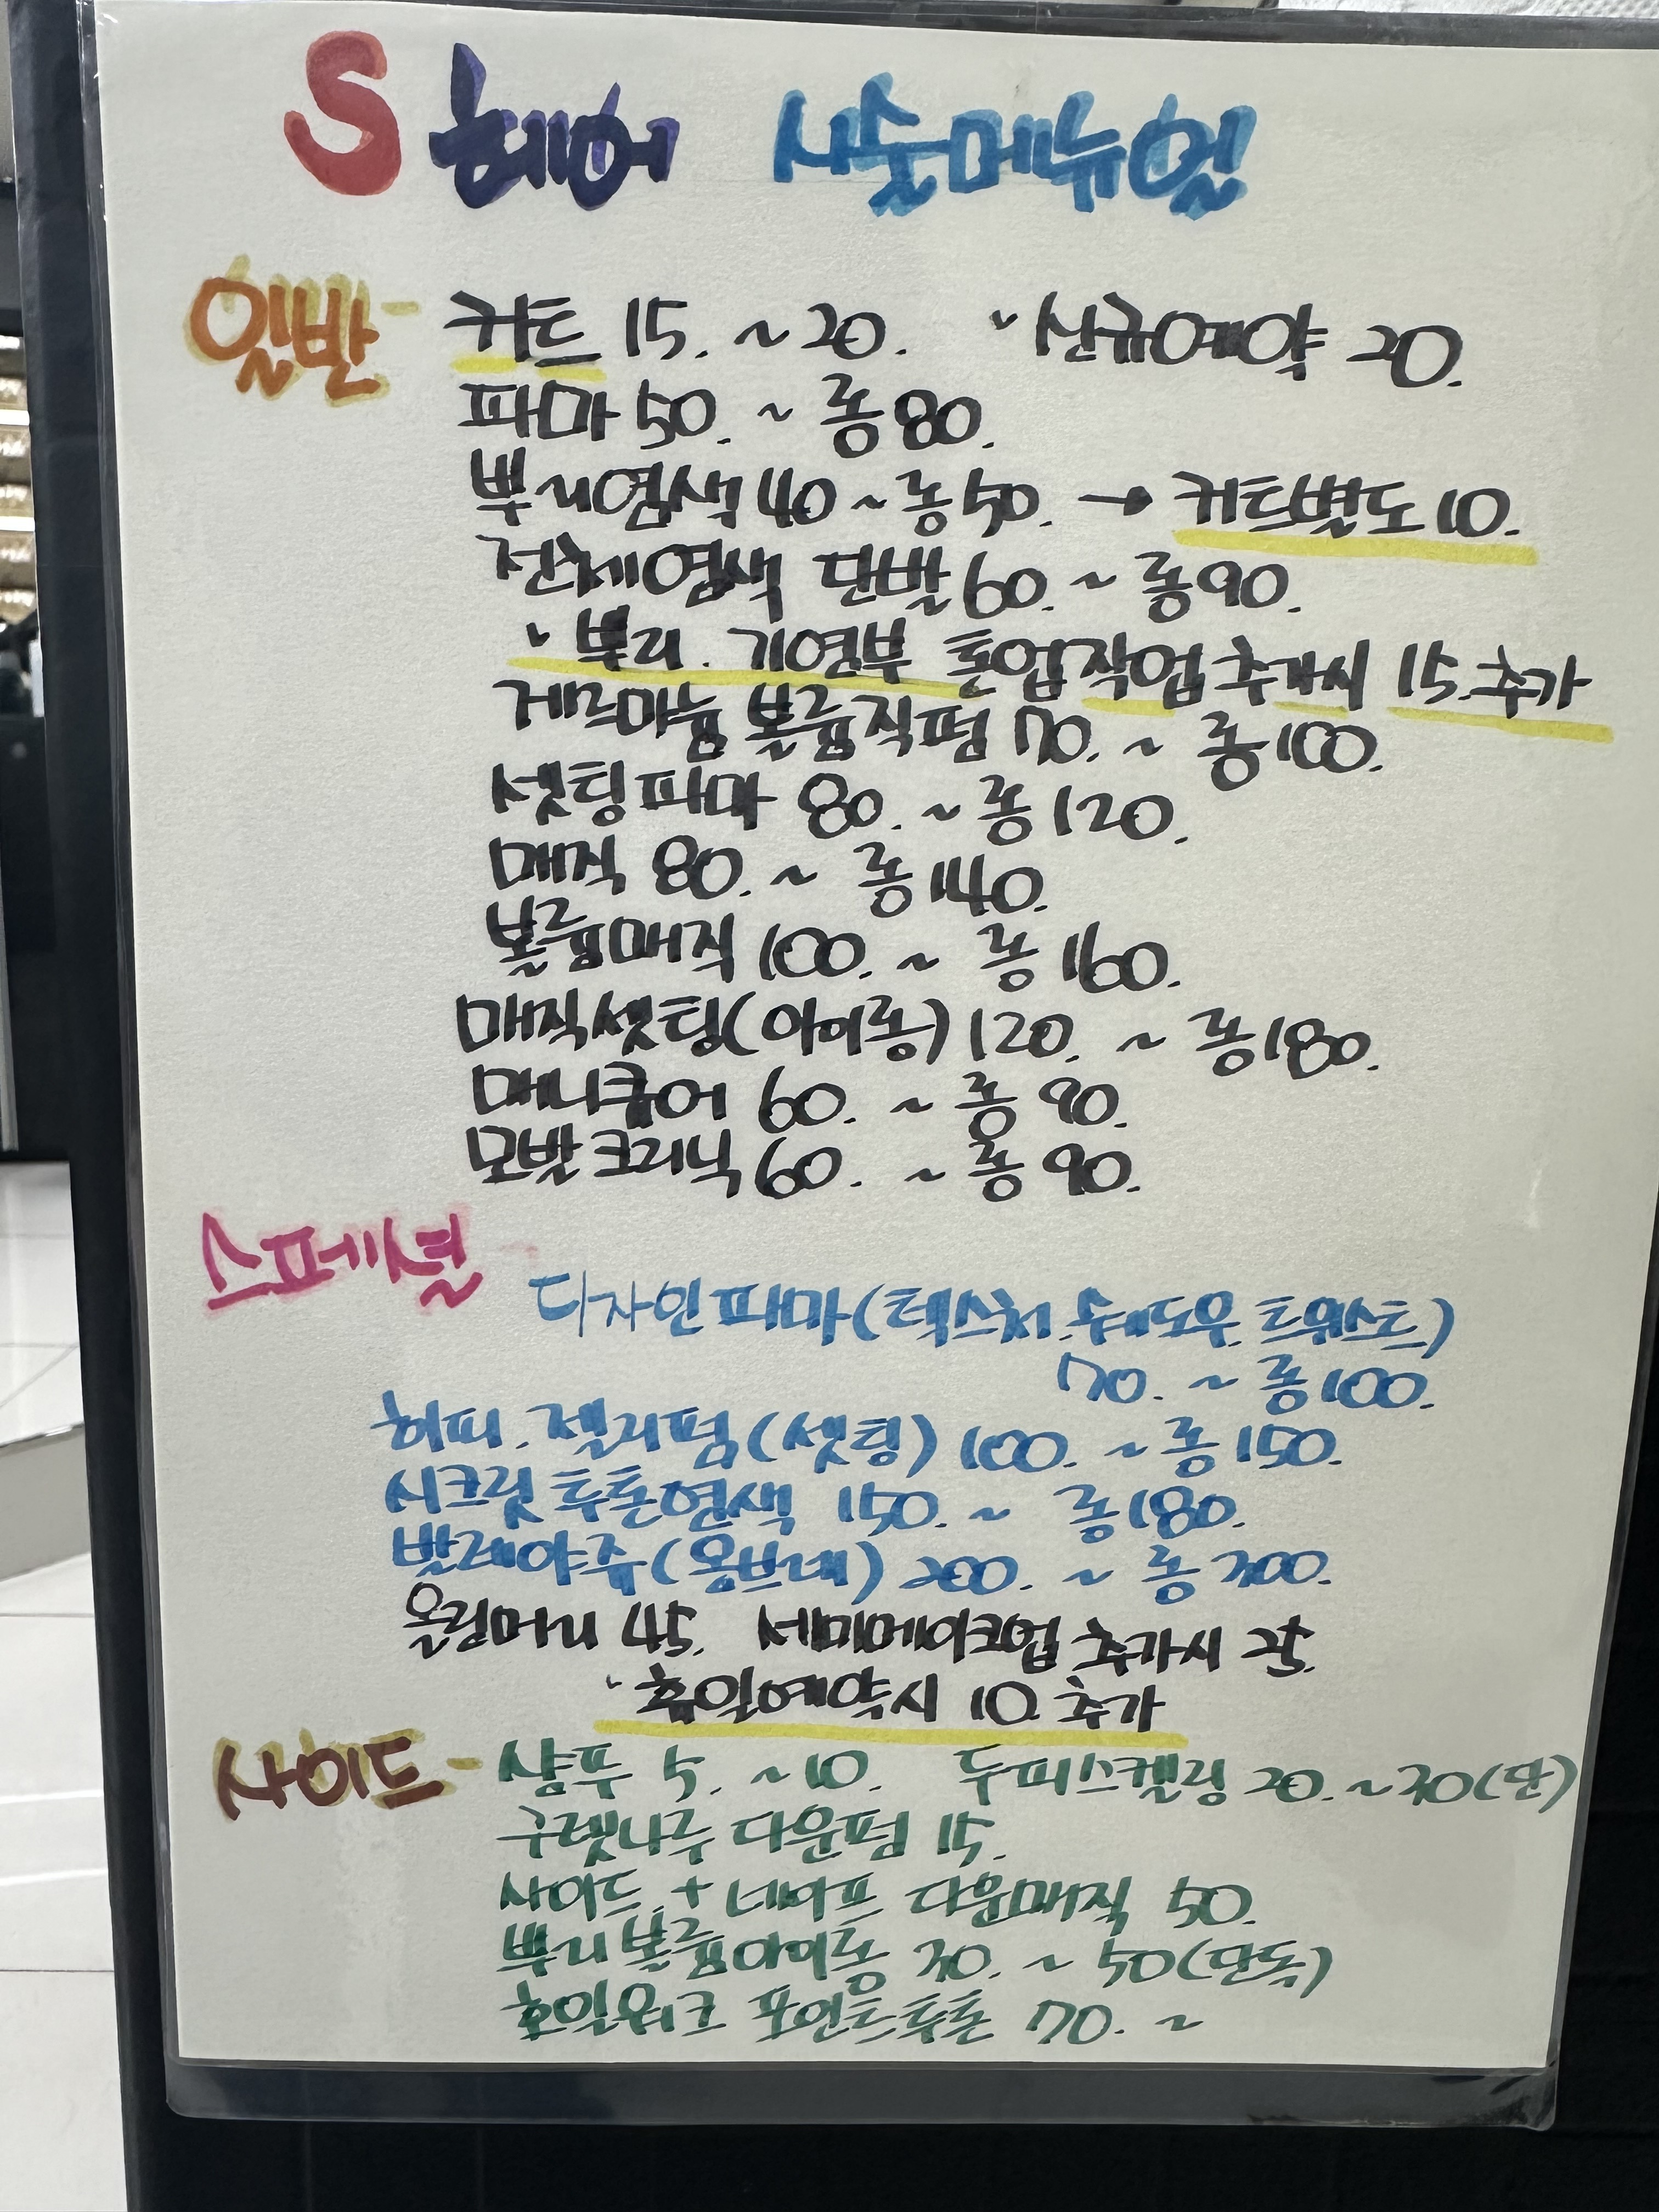 S 헤어 시술메뉴얼
일반 - 커트 15. ~ 20. ✓신규예약 20.
파마 50. ~ 롱 80.
뿌리염색 40 ~ 롱 50. → 커트별도 10.
전체염색 단발 60. ~ 롱 90.
✓뿌리. 기염부 톤업작업 추가시 15. 추가
게르마늄 볼륨직펌 70. ~ 롱 100.
셋팅파마 80. ~ 롱 120.
매직 80. ~ 롱 140.
볼륨매직 100. ~ 롱 160.
매직셋팅(아이롱) 120. ~ 롱 180.
매니큐어 60. ~ 롱 90.
모발크리닉 60. ~ 롱 90.
스페셜 -
디자인파마(텍스처. 쉐도우. 트위스트)
70. ~ 롱 100.
히피. 젤리펌(셋팅) 100. ~ 롱 150.
시크릿투톤염색 150. ~ 롱 180.
발레야쥬(옹브레) 200. ~ 롱 300.
올림머리 45. 세미메이크업 추가시 25.
✓휴일예약시 10. 추가
사이드 - 샴푸 5. ~ 10. 두피스켈링 20. ~ 30(단)
구렛나루 다운펌 15.
사이드 + 네이프 다운매직 50.
뿌리볼륨아이롱 30. ~ 50(단독)
호일워크 포인트투톤 70. ~